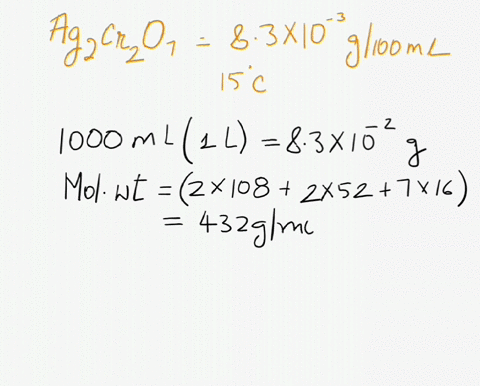 Ag₂Cr₂O₇ = 8.3×10⁻³ g/100mL
15°C
1000 mL (1L) = 8.3×10⁻² g
Mol. wt = (2×108 + 2×52 + 7×16)
= 432g/mc